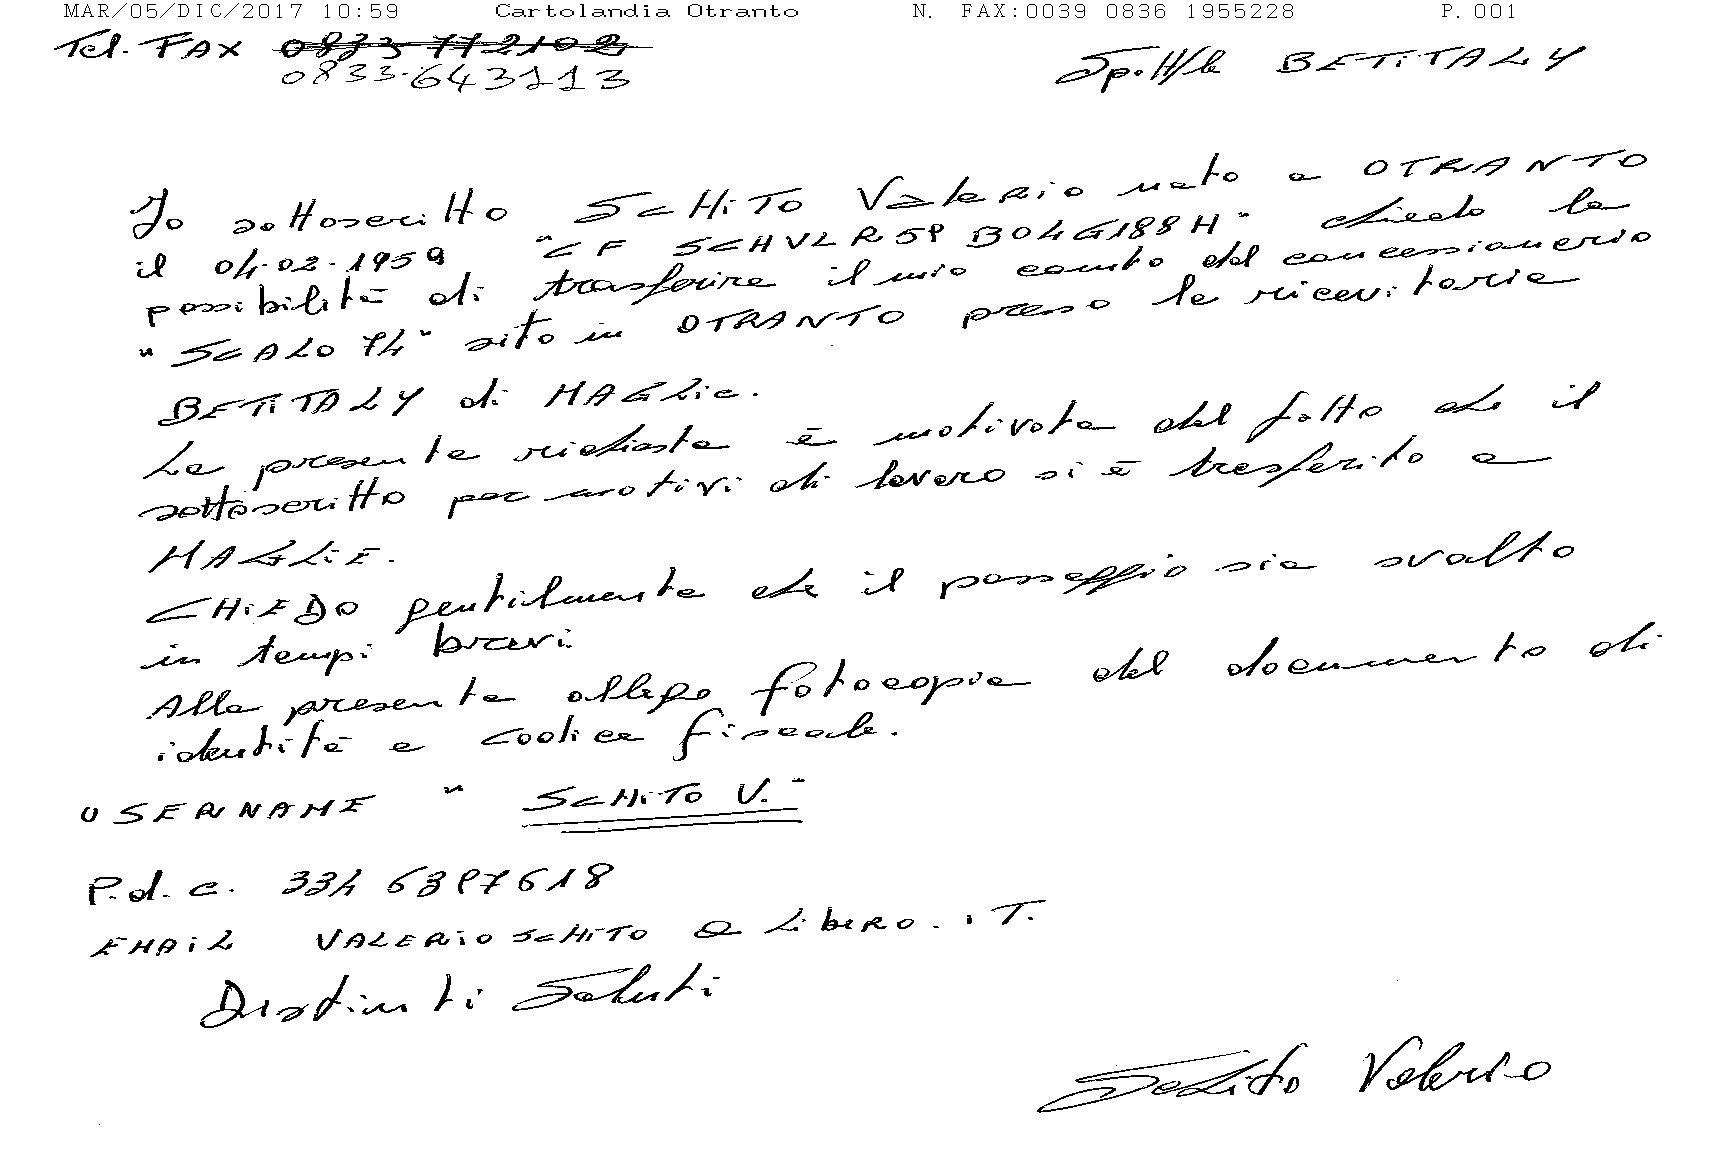 MAR/05/DIC/2017 10:59 Cartolandia Otranto N. FAX:0039 0836 1955228 P.001
Tel. FAX 0833 772102
0833-643113
Sp.tt/le BETITALY
Io sottoscritto SCHITO VALERIO nato a OTRANTO
il 04-02-1959 "CF SCHVLR59B04G188H" chiedo la
possibilità di trasferire il mio conto dal concessionario
"SCALO 74" sito in OTRANTO presso la ricevitoria
BETITALY di MAGLIE.
La presente richiesta è motivata dal fatto che il
sottoscritto per motivi di lavoro si è trasferito a
MAGLIE.
CHIEDO gentilmente che il passaggio sia svolto
in tempi brevi.
Alla presente allego fotocopia del documento di
identità e codice fiscale.
USERNAME "SCHITO V."
P.d.c. 334 6397618
EMAIL VALERIOSCHITO @ LIBERO.IT.
Distinti Saluti
Schito Valerio